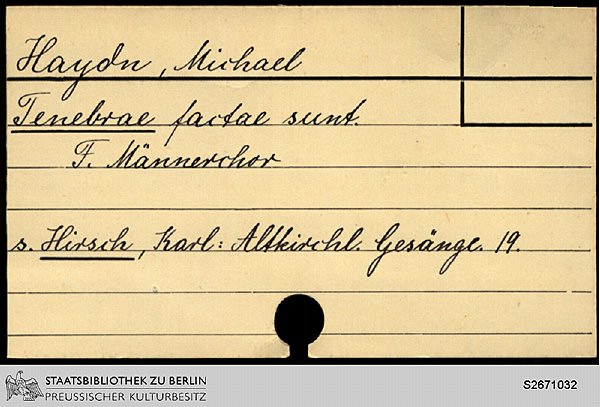 Haydn, Michael
Tenebrae factae sunt.
F. Männerchor
s. Hirsch, Karl: Altkirchl. Gesänge. 19.
STAATSBIBLIOTHEK ZU BERLIN
PREUSSISCHER KULTURBESITZ
S2671032